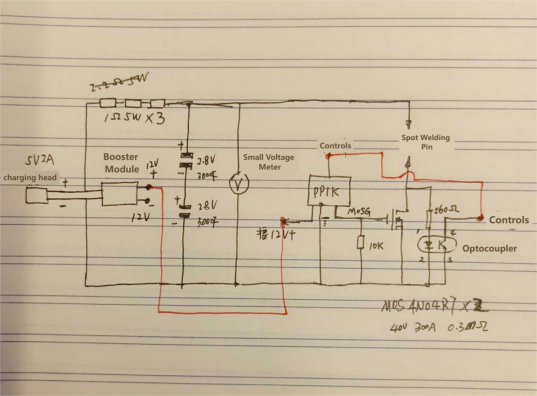 2.2Ω5W
1Ω5W×3
5V2A
charging head
+
-
Booster
Module
12V
+
-
12V
+
2.8V
300F
-
+
2.8V
300F
-
Small Voltage
Meter
V
接12V+
Controls
PP1K
MOSG
10K
Spot Welding
Pin
360Ω
Controls
Optocoupler
1
2
3
K
40V 300A 0.3mΩ